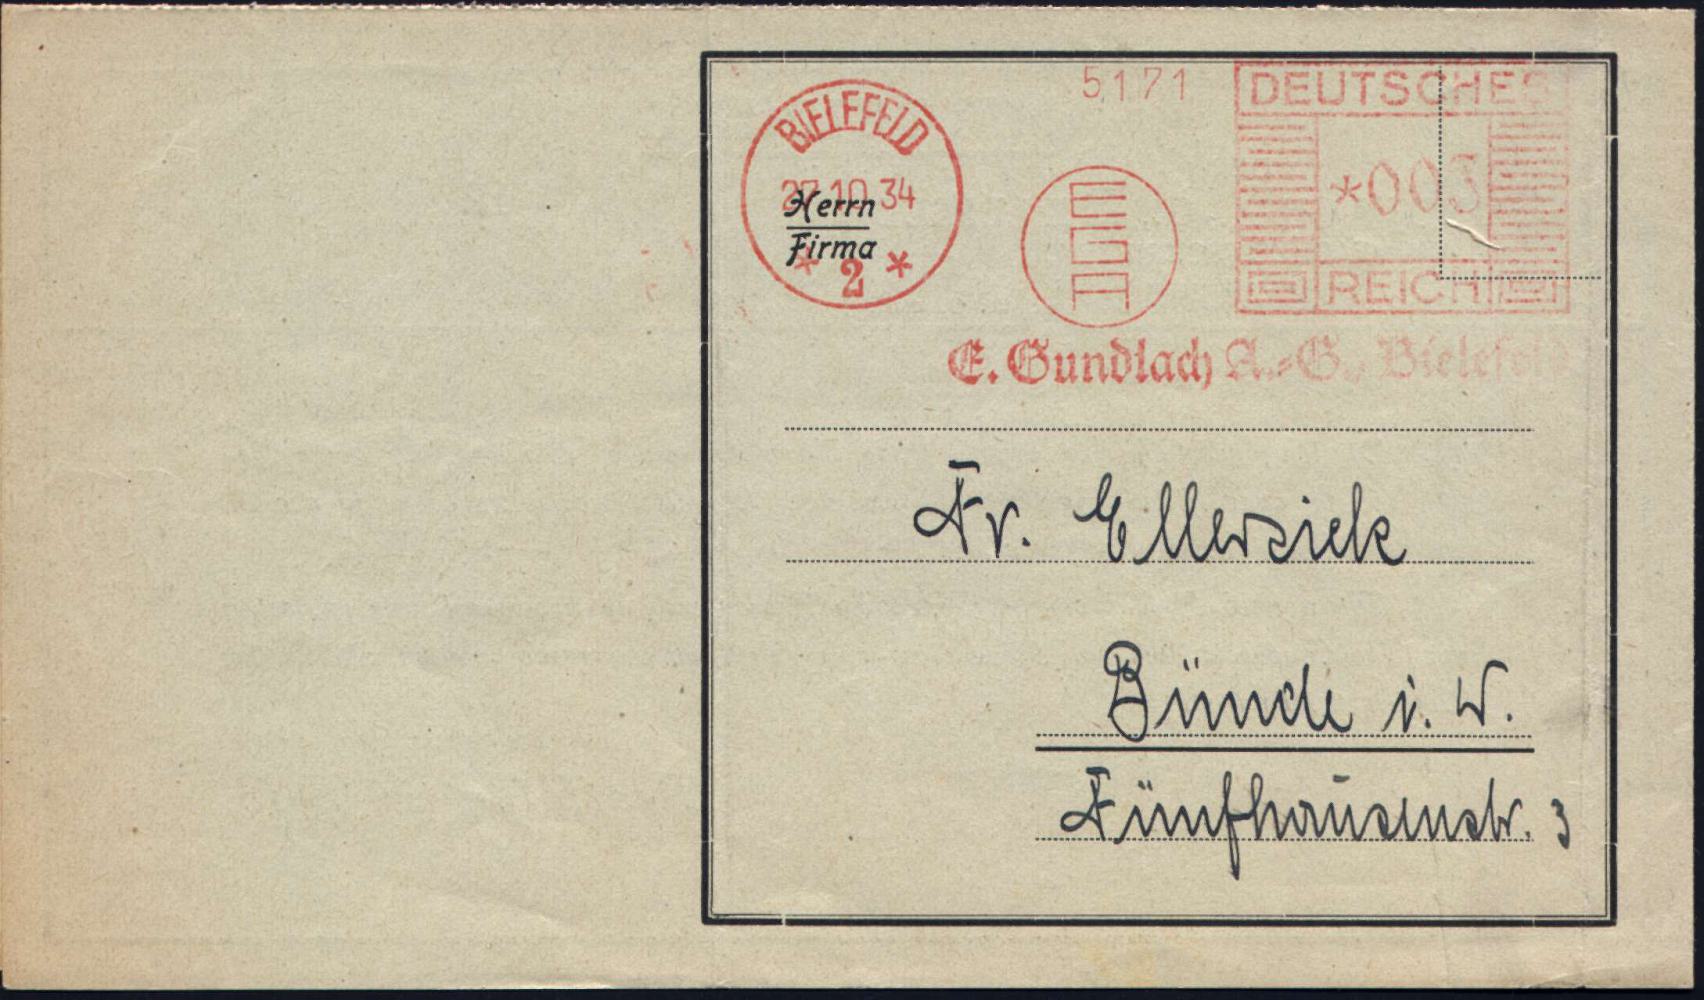 5171
DEUTSCHES
BIELEFELD
27.10.34
*003
Herrn
Firma
* 2 *
EGA
REICH
E. Gundlach A.-G., Bielefeld
Fr. Ellersiek
Bünde i. W.
Fünfhausenstr. 3